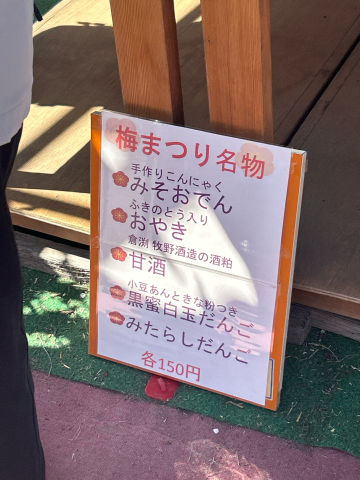 梅まつり名物
手作りこんにゃく
みそおでん
ふきのとう入り
おやき
倉渕 牧野酒造の酒粕
甘酒
小豆あんときな粉つき
黒蜜白玉だんご
みたらしだんご
各150円